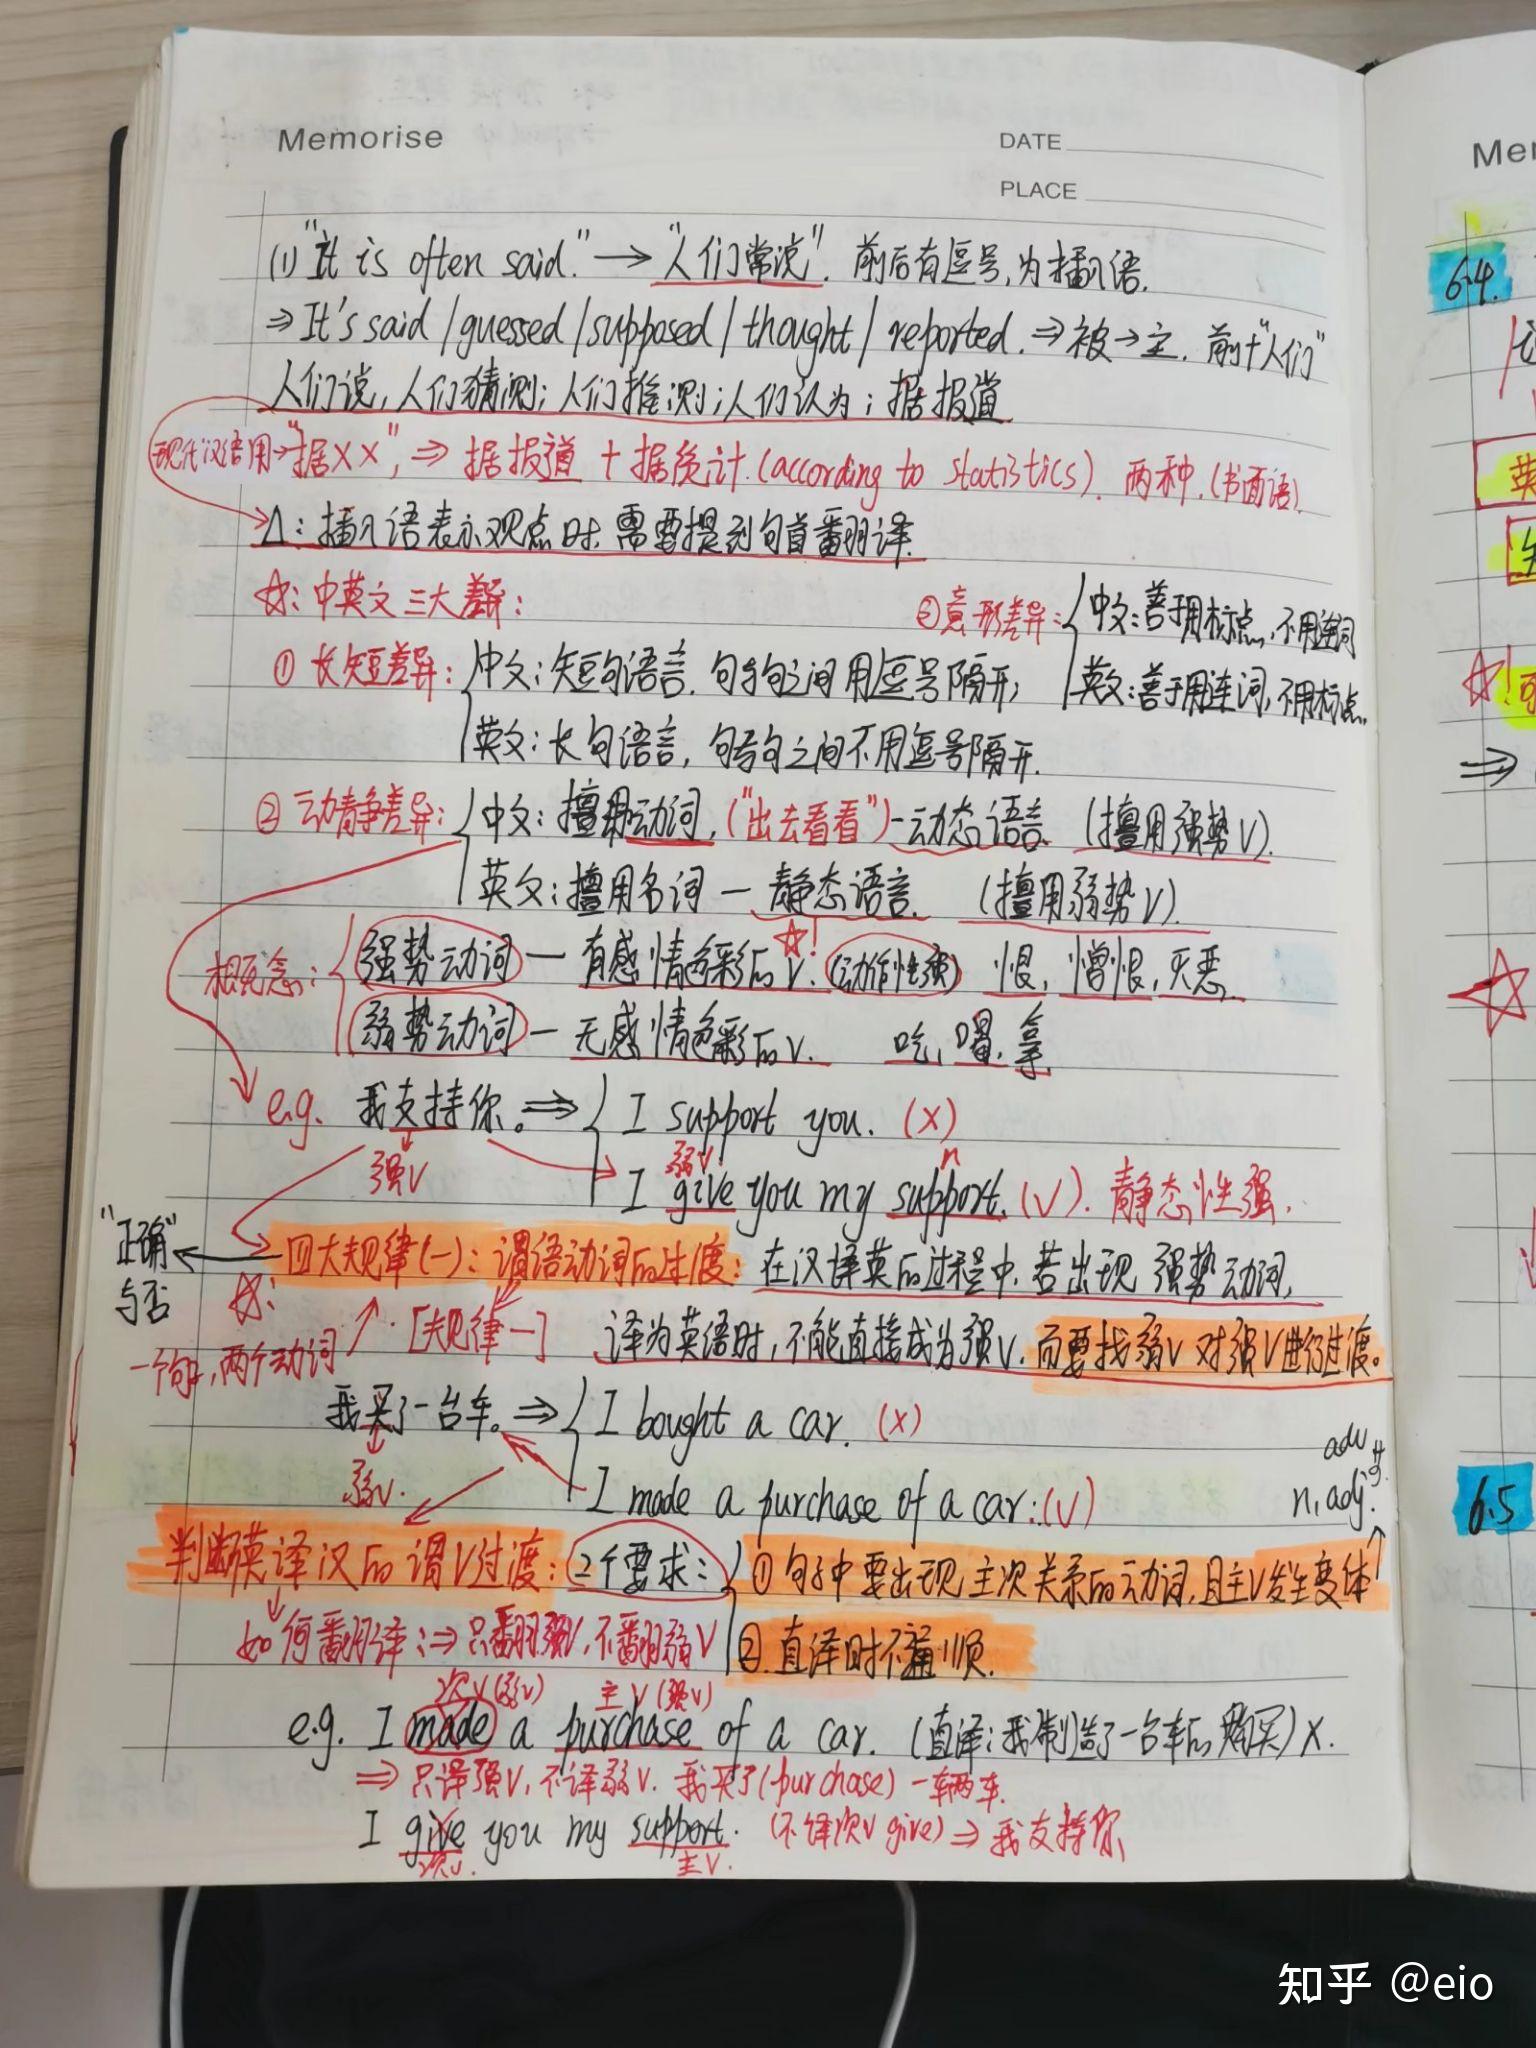 Memorise
DATE
PLACE
(1) "It is often said." → "人们常说". 前后有逗号,为插入语.
⇒ It's said/guessed/supposed/thought/reported. ⇒ 被→主. 前+"人们"
人们说, 人们猜测; 人们推测; 人们认为; 据报道
现代汉语用→"据××", ⇒ 据报道 + 据统计.(according to statistics). 两种.(书面语).
△: 插入语表示观点时.需要提到句首翻译.
☆: 中英文三大差异:
① 长短差异: 中文: 短句语言. 句与句之间用逗号隔开;
英文: 长句语言, 句与句之间不用逗号隔开.
③意形差异: 中文:善于用标点,不用连词
英文:善于用连词,不用标点.
② 动静差异: 中文: 擅用动词, ("出去看看")-动态语言. (擅用强势V).
英文: 擅用名词 — 静态语言. (擅用弱势V).
☆!
概念: 强势动词 — 有感情色彩的V. (动作性强) 恨, 憎恨, 厌恶.
弱势动词 — 无感情色彩的V. 吃, 喝, 拿
e.g. 我支持你。⇒ I support you. (×)
强V
弱V n
I give you my support. (√). 静态性强.
"正确"与否
☆:
四大规律(一): 谓语动词的过渡: 在汉译英的过程中, 若出现强势动词,
一个句子,两个动词 [规律一] 译为英语时, 不能直接成为强V. 而要找弱V对强V进行过渡。
我买了一台车。⇒ I bought a car. (×)
弱V.
I made a purchase of a car. (√)
adv
n, adj.
判断英译汉的谓V过渡: 2个要求: ① 句子中要出现主次关系的动词,且主V发生变体
② 直译时不通顺.
如何翻译: ⇒ 只翻强V, 不翻弱V
次V(弱V) 主V(强V)
e.g. I made a purchase of a car. (直译: 我制造了一台车的购买) ×.
⇒ 只译强V, 不译弱V. 我买了(purchase) 一辆车.
I give you my support. (不译次V give) ⇒ 我支持你
次V. 主V.
Mer
6.4.
6.5
知乎 @eio